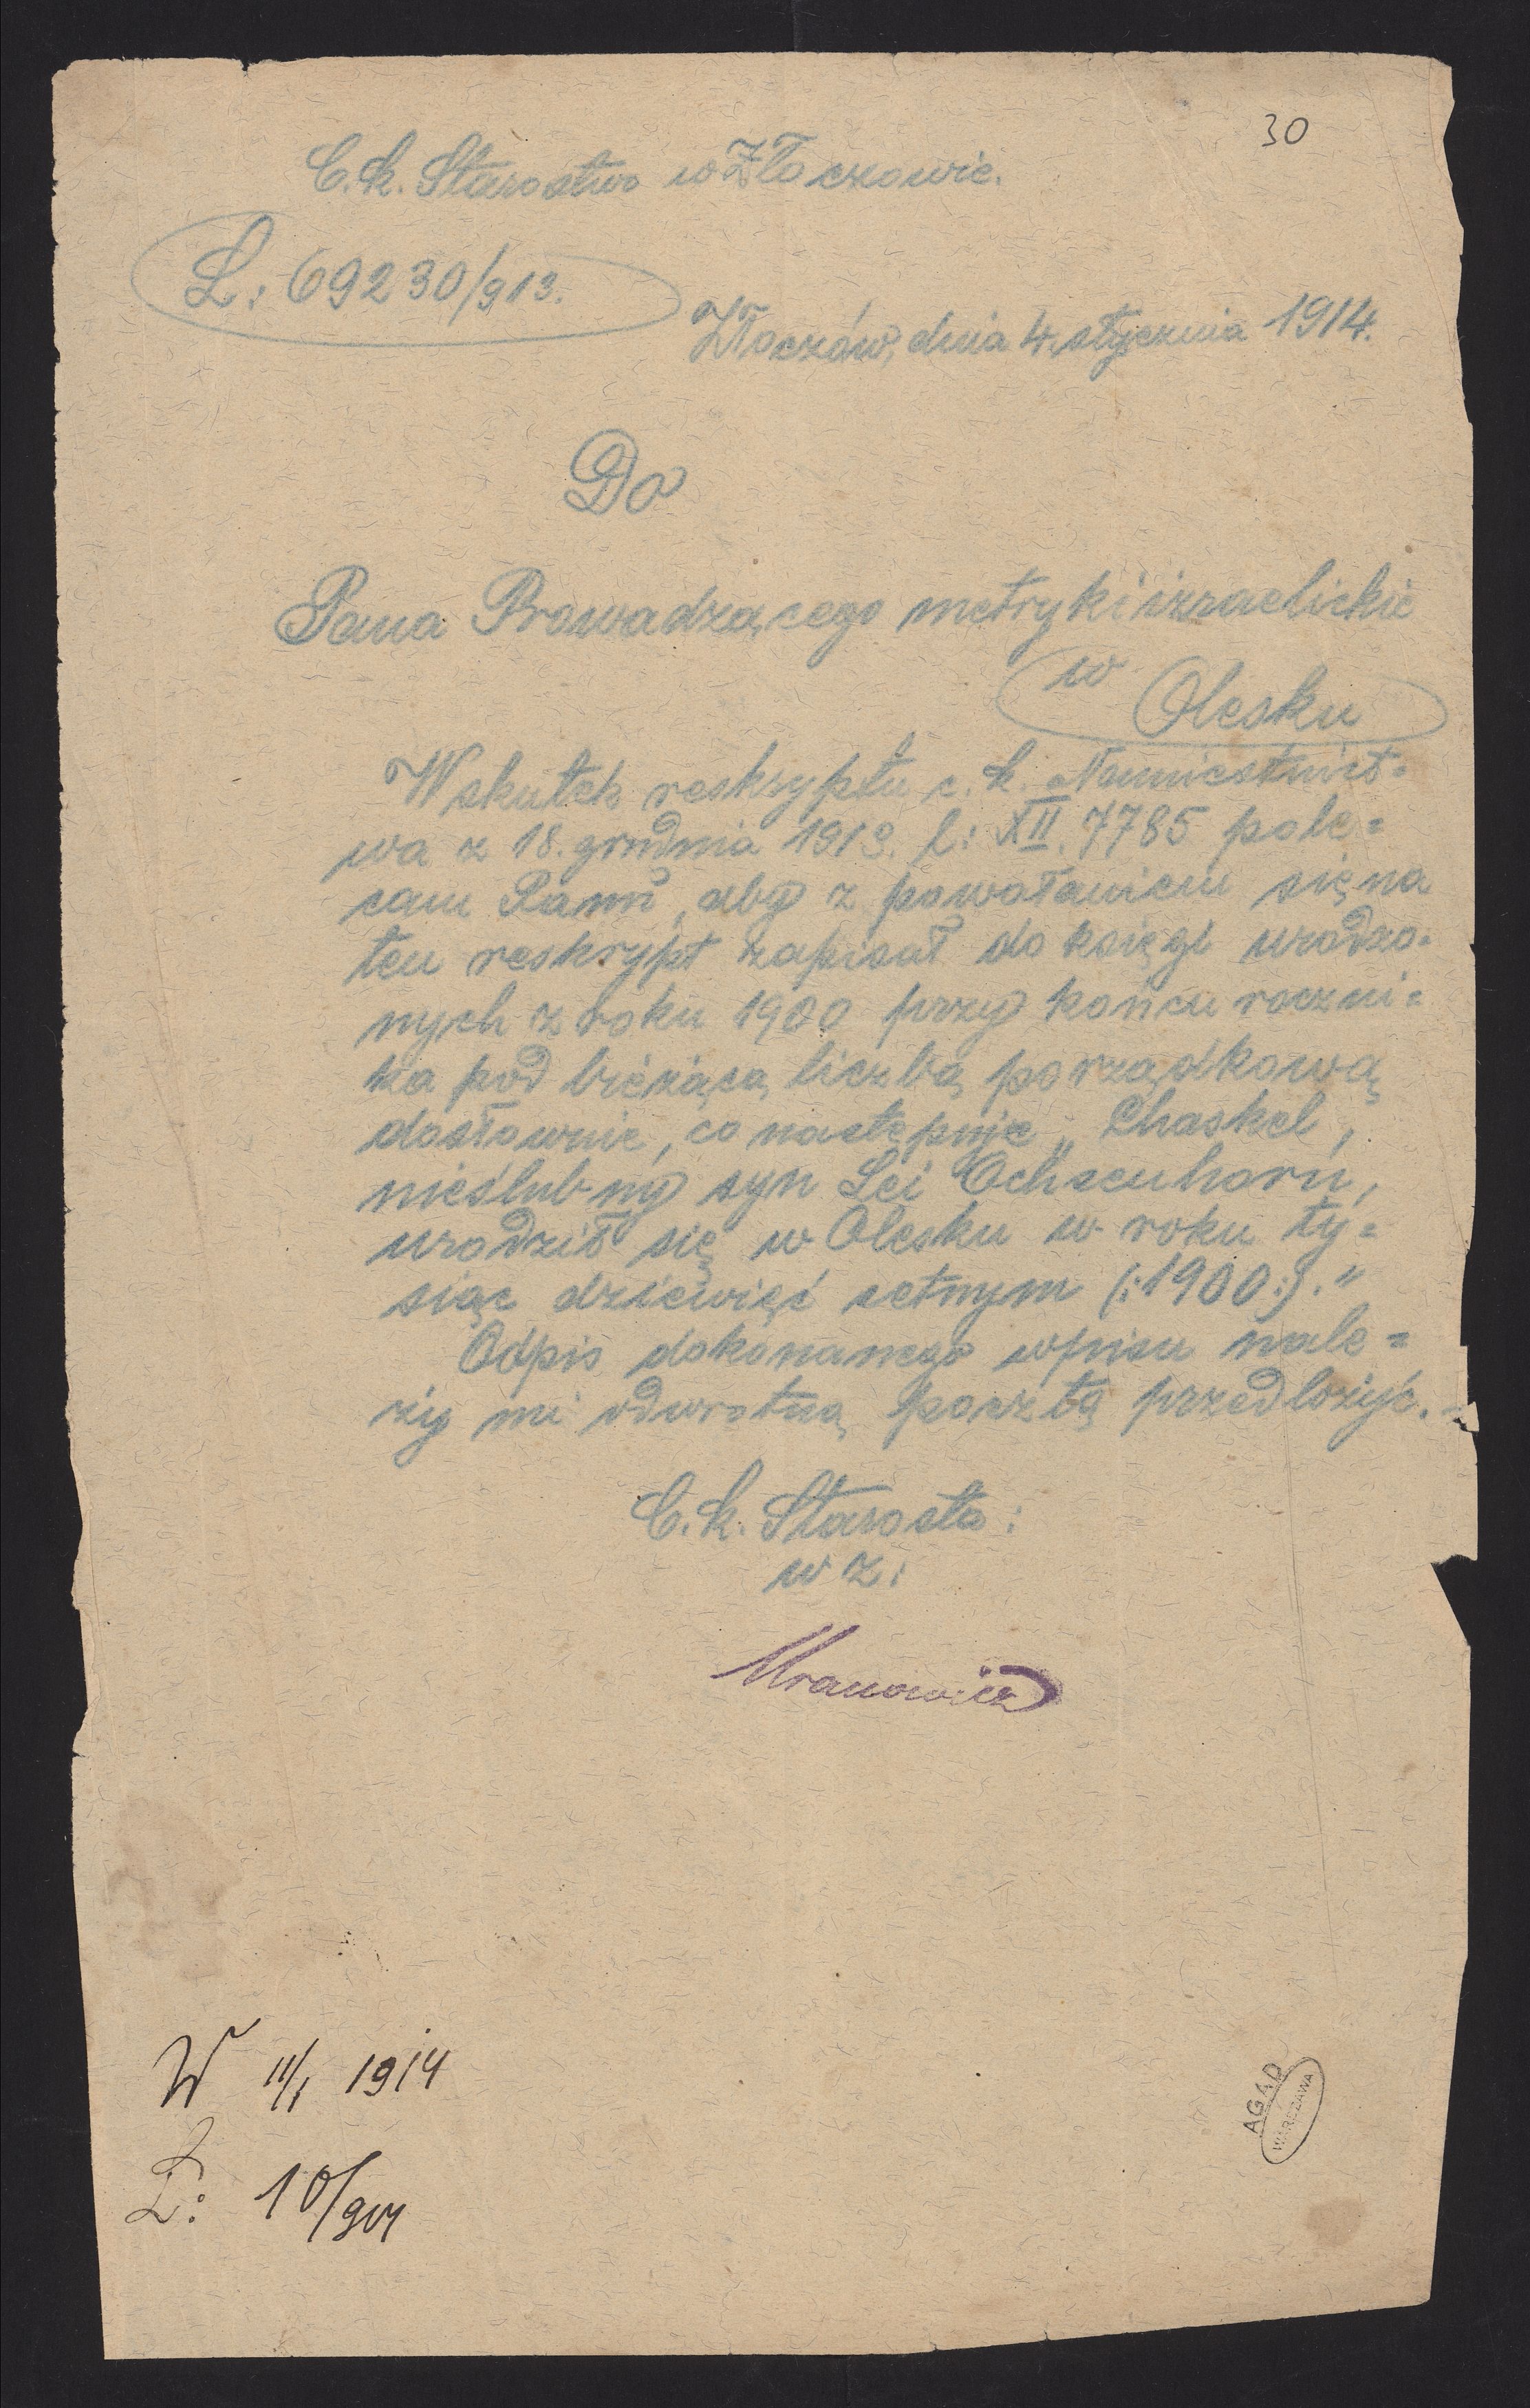 30
C. k. Starostwo w Złoczowie.
L: 69230/913.
Złoczów, dnia 4. stycznia 1914.
Do
Pana Prowadzącego metryki izraelickie
w Olesku
Wskutek reskryptu c. k. Namiestnict=
wa z 18. grudnia 1913. l: XII. 7785 pole=
cam Panu, aby z powołaniem się na
ten reskrypt zapisał do księgi urodzo=
nych z roku 1900 przy końcu roczni=
ka pod bieżącą liczbą porządkową
dosłownie, co następuje „Chaskel,
nieślubny syn Lei Ochsenhorn,
urodził się w Olesku w roku ty=
siąc dziewięć setnym (:1900:)."
Odpis dokonanego wpisu nale=
ży mi odwrotną pocztą przedłożyć.-
C. k. Starosta:
w z:
W 11/1 1914
L: 10/914
AGAD
WARSZAWA